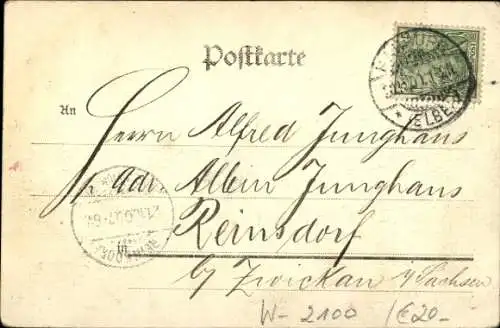 Postkarte
An
Herrn Alfred Junghans
p. Adr. Albin Junghans
Reinsdorf
in
b/ Zwickau i/Sachsen
W- 2100 /€20-
(ELBE)